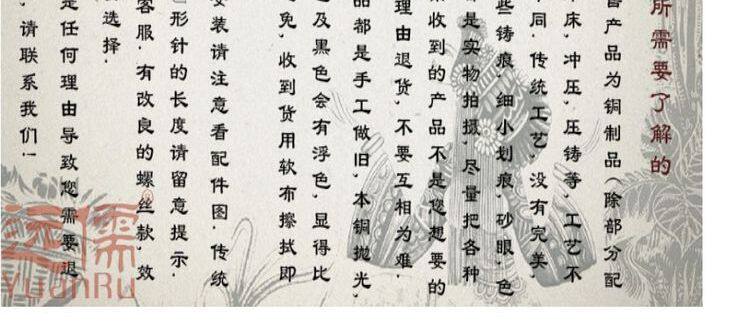 所需要了解的
售产品为铜制品（除部分配
车床，冲压，压铸等，工艺不
不同，传统工艺，没有完美，
些铸痕，细小划痕，砂眼，色
都是实物拍摄，尽量把各种
果收到的产品不是您想要的
理由退货，不要互相为难．
品都是手工做旧，本铜抛光，
色及黑色会有浮色，显得比
免，收到货用软布擦拭即
安装请注意看配件图．传统
形针的长度请留意提示．
客服．有改良的螺丝款，效
选择．
是任何理由导致您需要退
，请联系我们！
远儒®
YuanRu